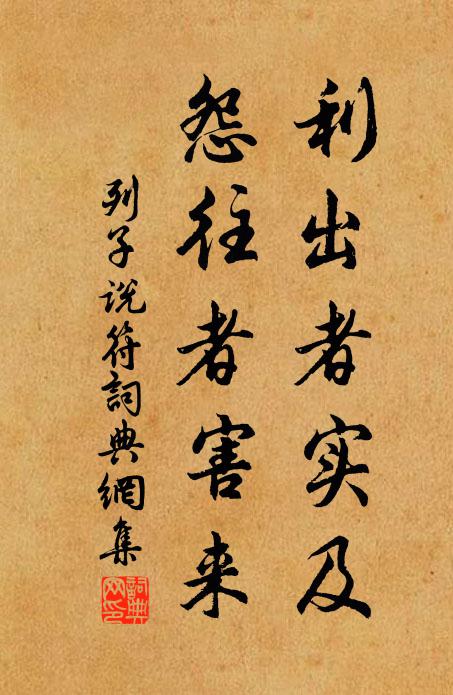 利出者实及
怨往者害来
列子说符詞典網集
詞典网印